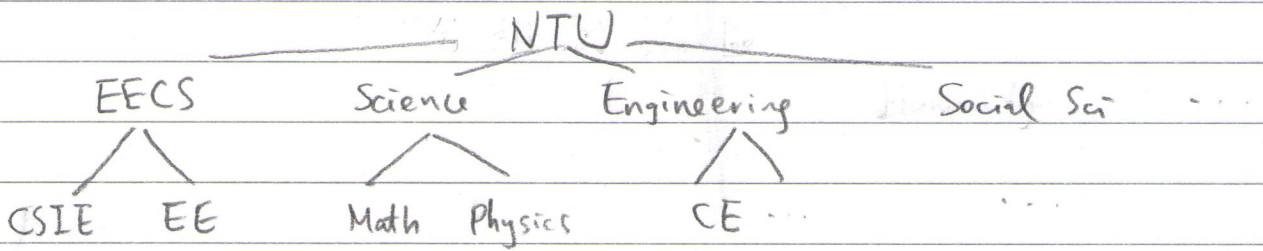 NTU
EECS Science Engineering Social Sci ....
CSIE EE Math Physics CE ... ...